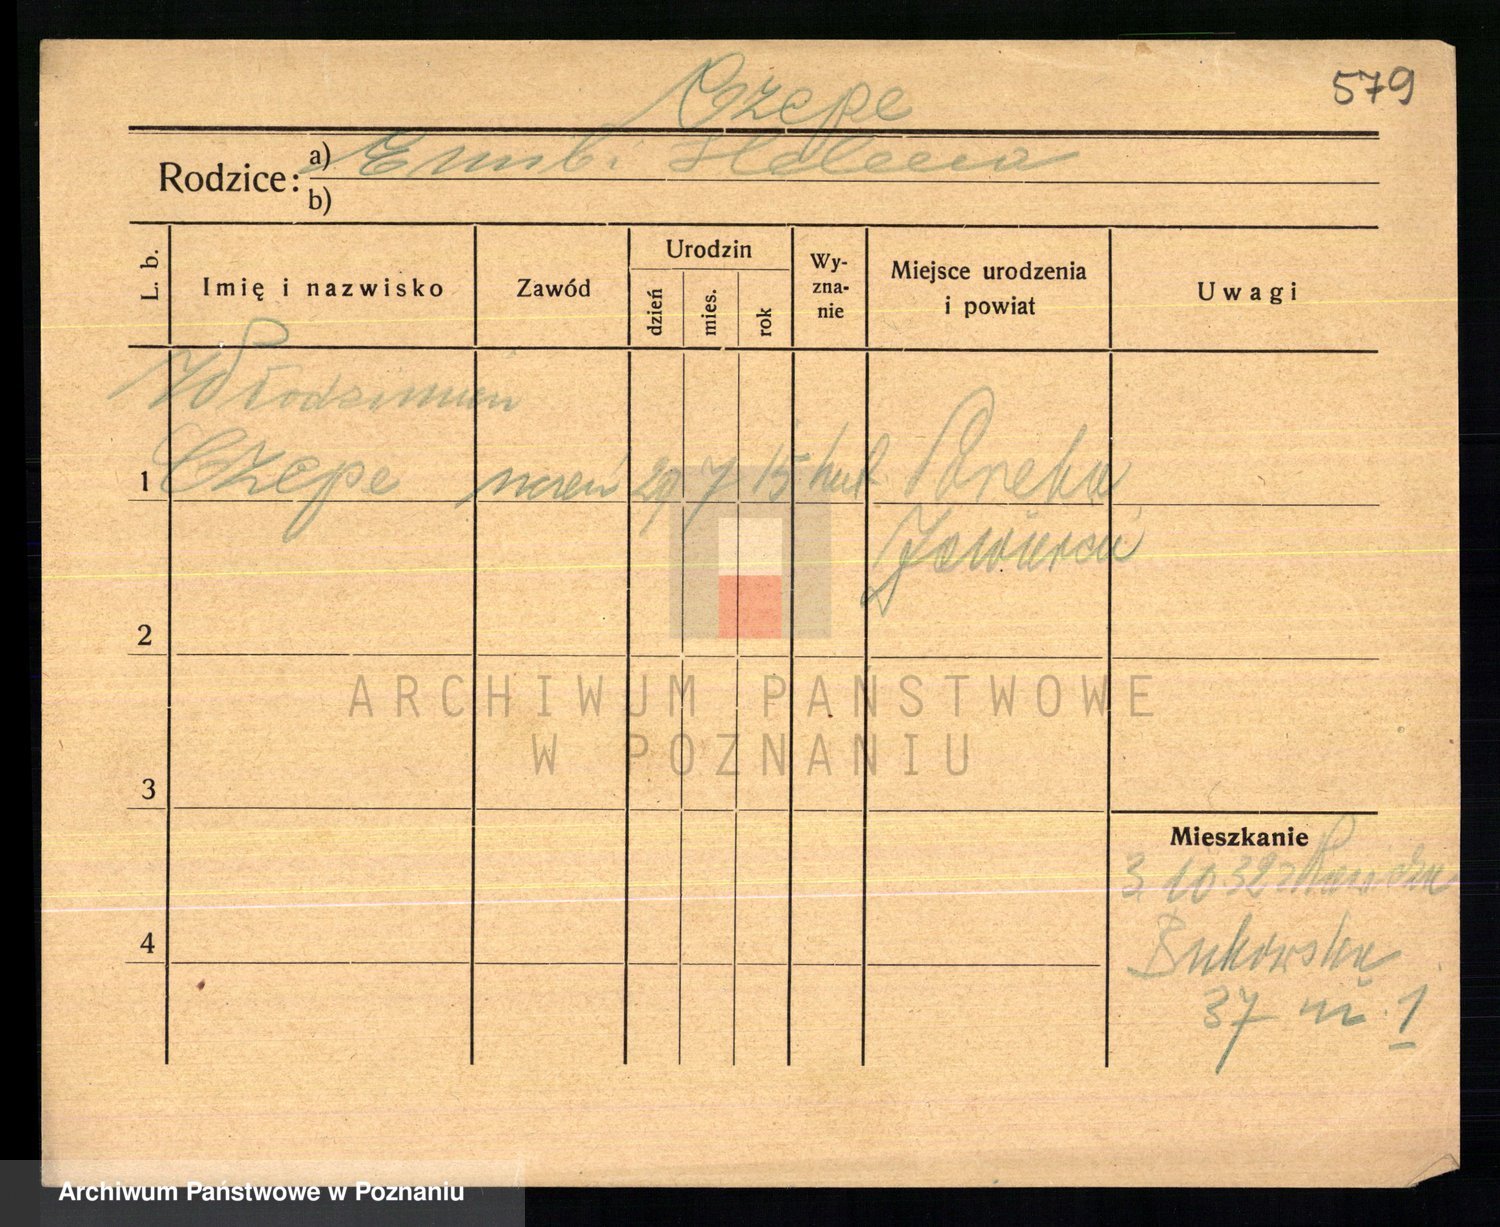 579
Czepe
Rodzice: a) Emil i Helena
b)
L. b.
Imię i nazwisko
Zawód
Urodzin
dzień
mies.
rok
Wy-
zna-
nie
Miejsce urodzenia
i powiat
Uwagi
Włodzimierz
1 Czepe uczeń 29 7 15
2
3
4
Mieszkanie
3 10 32 z
Bukowska
37 m. 1
ARCHIWUM PAŃSTWOWE
W POZNANIU
Archiwum Państwowe w Poznaniu